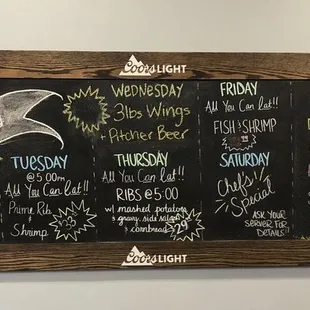 Coors LIGHT
WEDNESDAY
3lbs Wings
+
Pitcher Beer
FRIDAY
All You Can Eat!!
FISH & SHRIMP
TUESDAY
@ 5:00pm
All You Can Eat!!
Prime Rib
&
Shrimp
THURSDAY
All You Can Eat!!
RIBS @ 5:00
w/ mashed potatoes
& gravy, side salad
& cornbread
29
SATURDAY
Chef's
Special
ASK YOUR
SERVER FOR
DETAILS!
Coors LIGHT